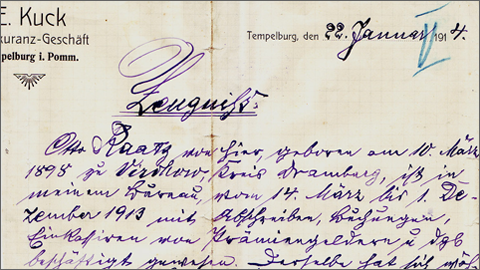 E. Kuck
kuranz-Geschäft
pelburg i. Pomm.
Tempelburg, den 22. Januar 1914.
V
Zeugniss.
Otto Raatz von hier, geboren am 10. März
1898 zu Virchow, Kreis Dramburg, ist in
meinem Bureau, vom 14. März bis 1. De-
zember 1913 mit Abschreiben, Buchungen,
Einkassiren von Prämiengeldern u dgl
beschäftigt gewesen. Derselbe hat sich wäh-